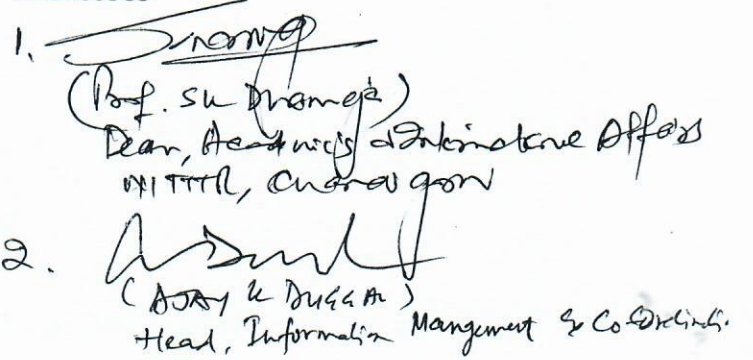 1.
(Prof. SK Dhameja)
Dean, Academics & International Affairs
NITTTR, Chandigarh
2.
(AJAY K DUGGAL)
Head, Information Mangement & Co-ordinati.